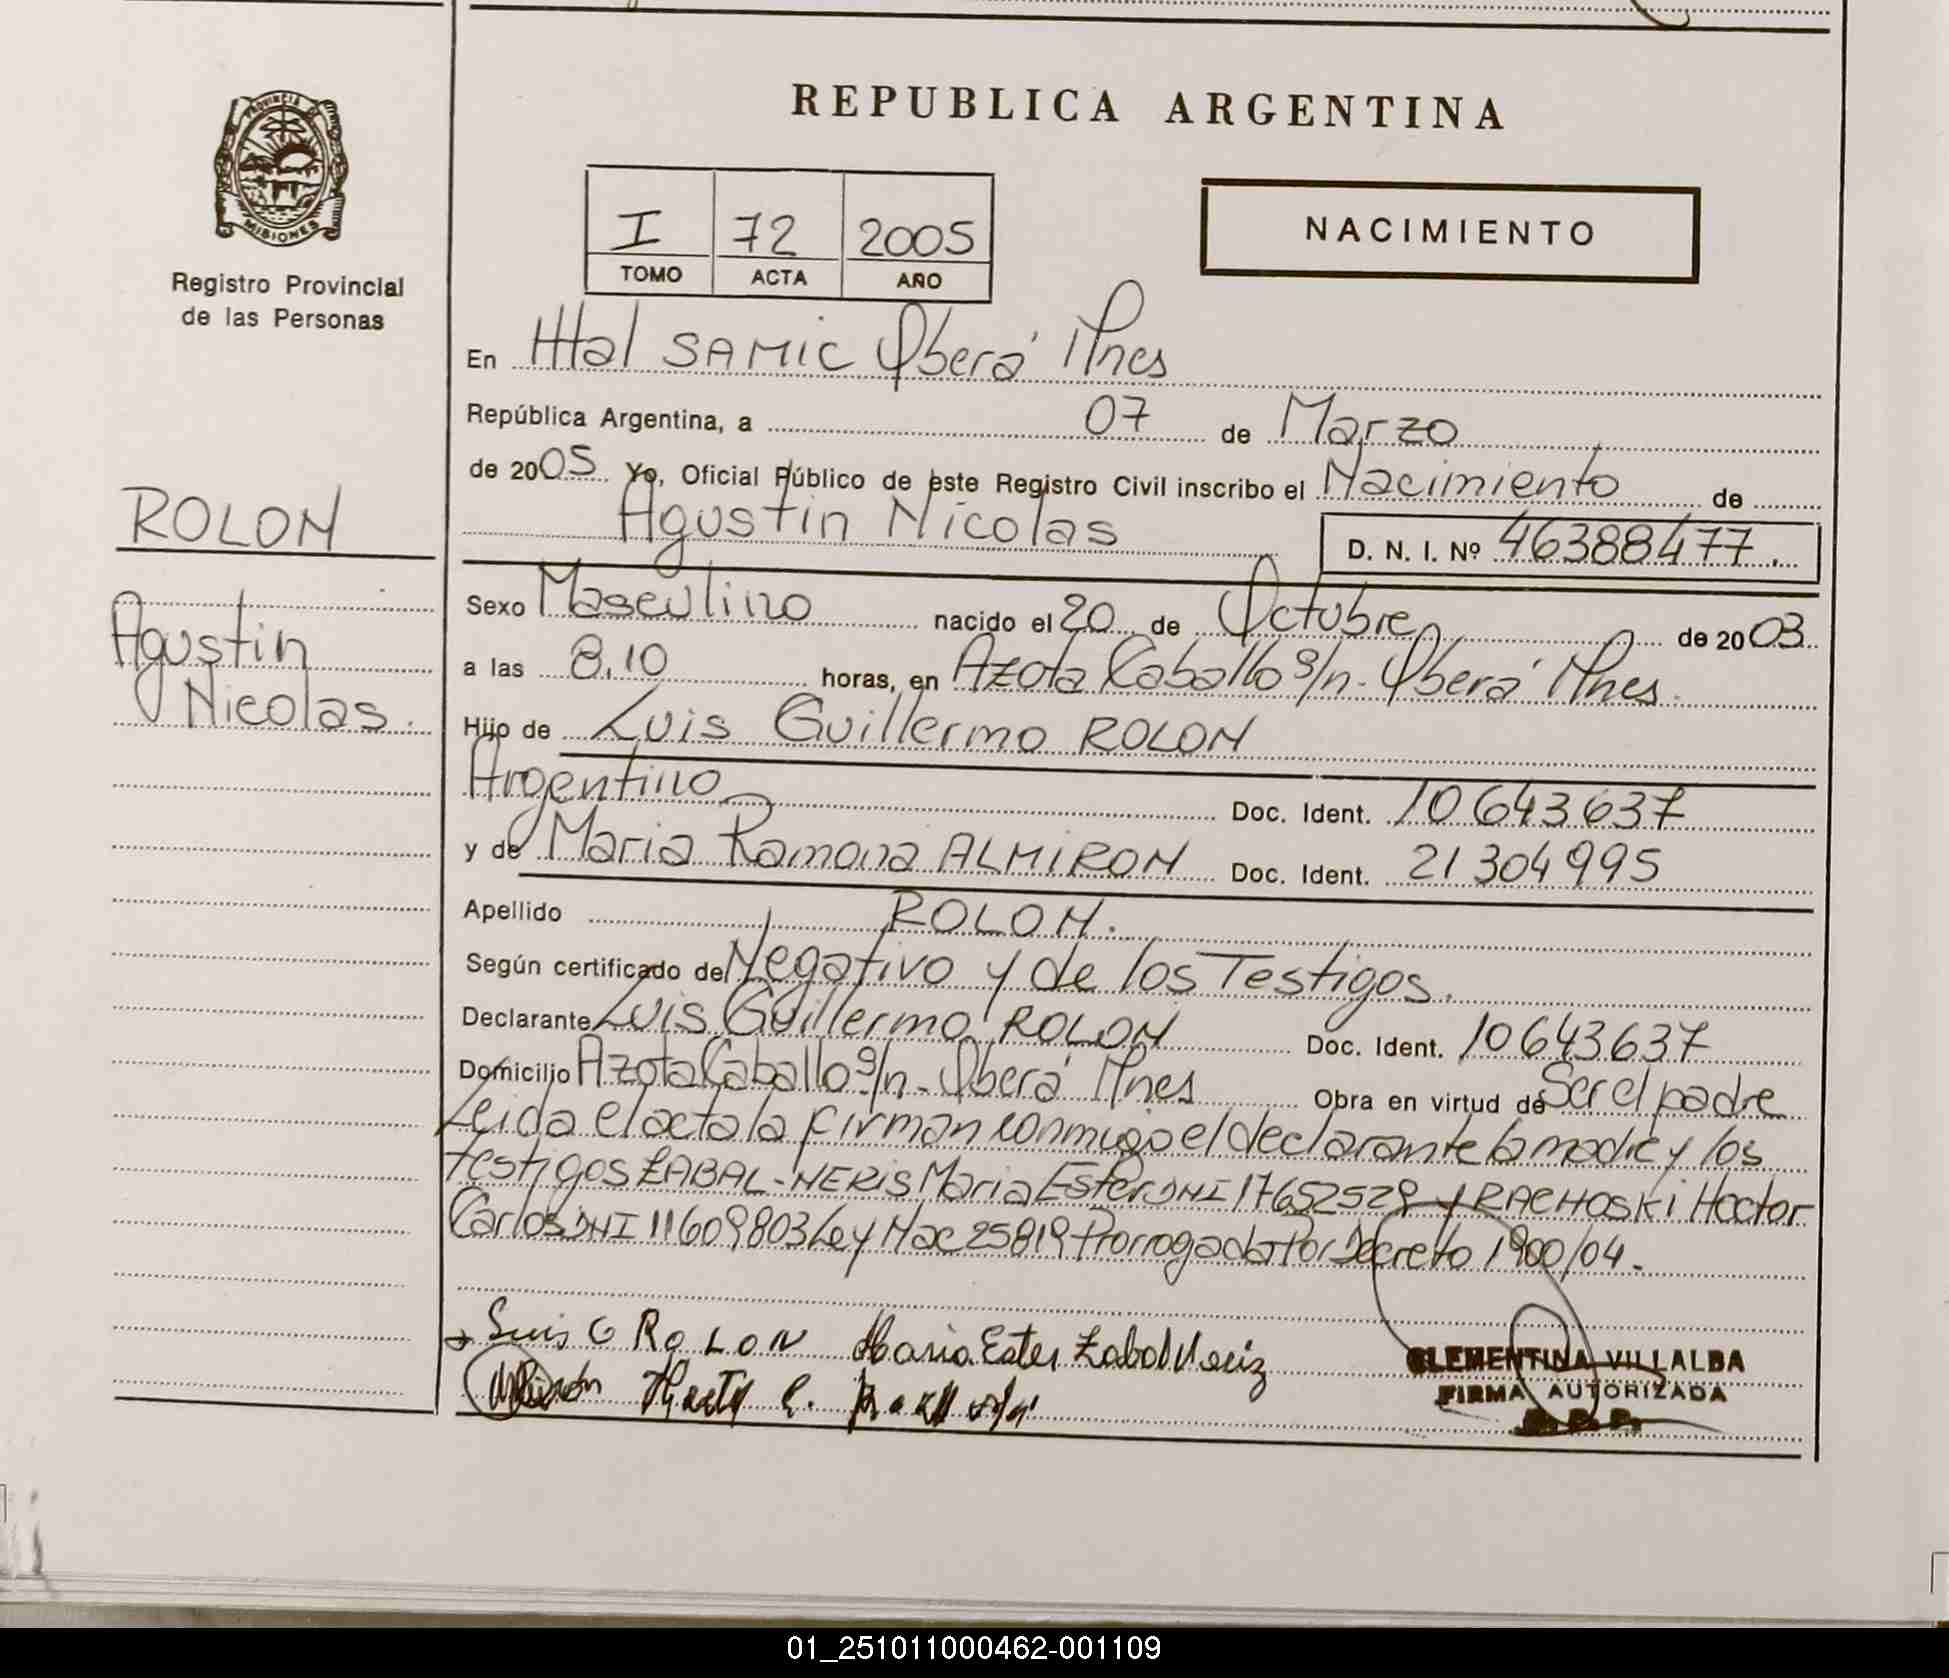 REPUBLICA ARGENTINA
PROVINCIA
MISIONES
Registro Provincial
de las Personas
I 72 2005
TOMO ACTA AÑO
NACIMIENTO
En Htal SAMIC Oberá Mnes
República Argentina, a 07 de Marzo
de 2005 Yo, Oficial Público de este Registro Civil inscribo el Nacimiento de
Agustin Nicolas D. N. I. Nº 46388477.
ROLON
Agustin
Nicolas.
Sexo Masculino nacido el 20 de Octubre de 2003
a las 8.10 horas, en Azota Caballo s/n. Oberá Mnes.
Hijo de Luis Guillermo ROLON
Argentino Doc. Ident. 10643637
y de Maria Ramona ALMIRON Doc. Ident. 21304995
Apellido ROLON.
Según certificado de Negativo y de los Testigos.
Declarante Luis Guillermo ROLON Doc. Ident. 10643637
Domicilio Azota Caballo s/n. Oberá Mnes Obra en virtud de Ser el padre
Leida el acta la firman conmigo el declarante la madre y los
testigos ZABAL-NERIS Maria Ester DNI 17652528 y RACHOSKI Hector
Carlos DNI 11609803 Ley Nac 25819 Prorrogada Por Decreto 1900/04.
Luis G ROLON Maria Ester Zabal Neriz
CLEMENTINA VILLALBA
FIRMA AUTORIZADA
R. P. P.
01_251011000462-001109